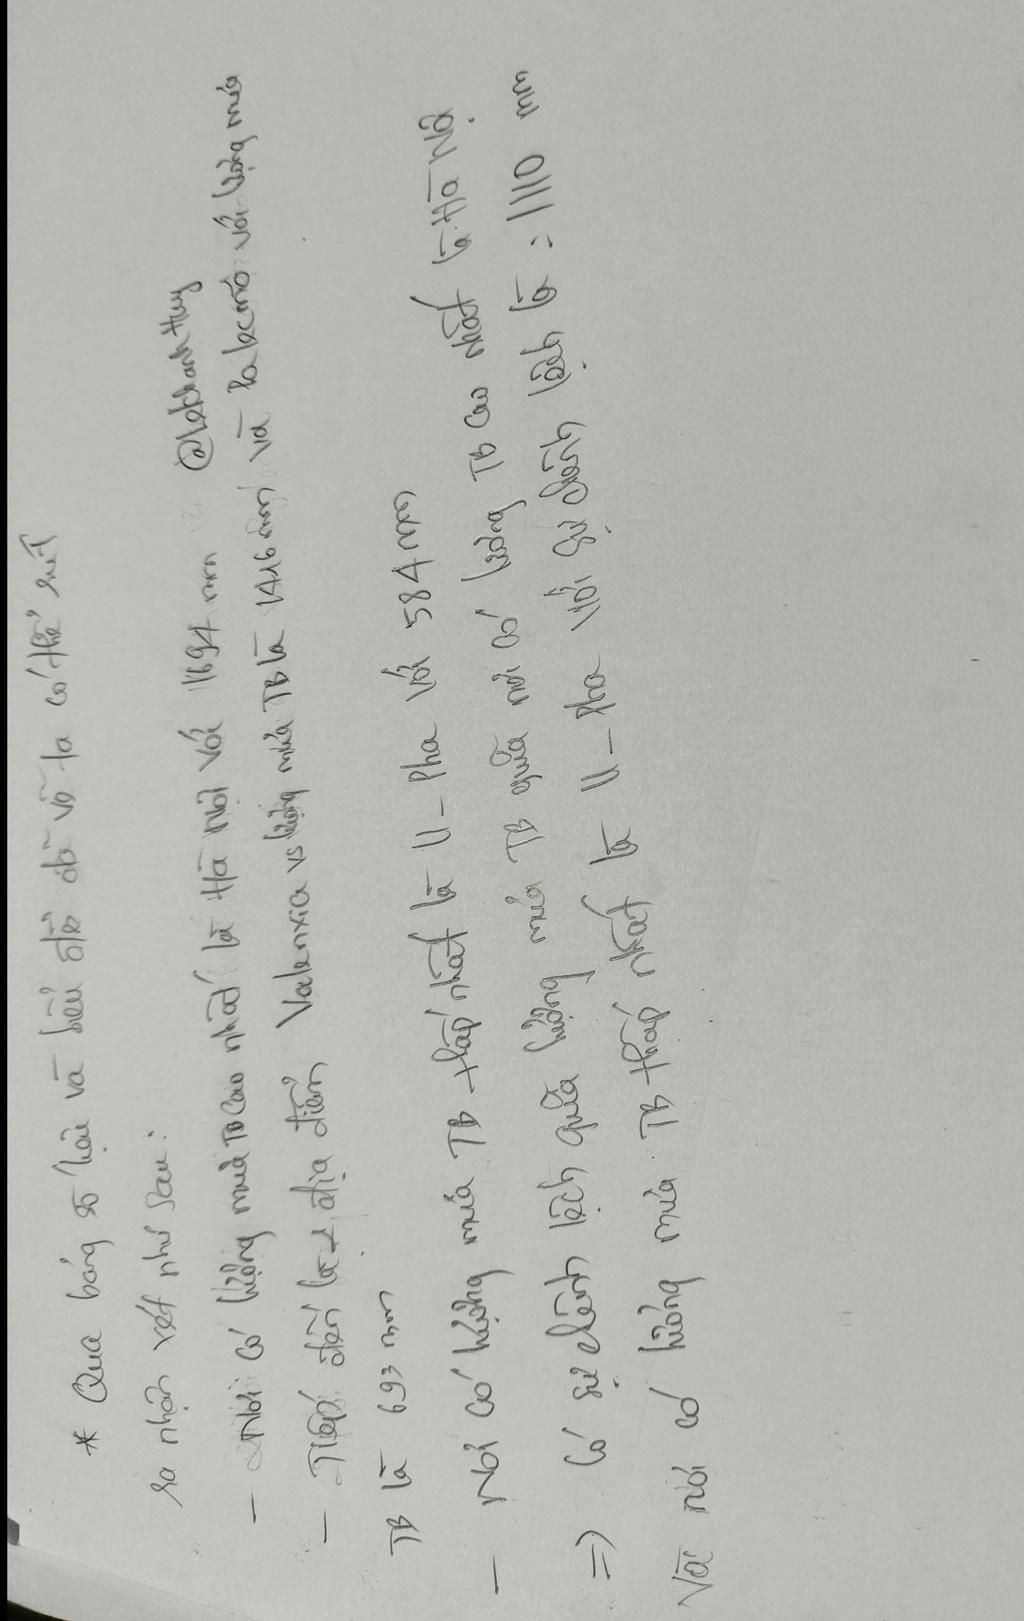 * Qua bảng số liệu và biểu đồ đã vẽ ta có thể rút
ra nhận xét như sau:
@lekhanhHuy
- Nơi có lượng mưa TB cao nhất là Hà Nội với 1694 mm
- Tiếp đến là 2 địa điểm Valenxia vs lượng mưa TB là 1416 mm và với lượng mưa
TB là 693 mm
- Nơi có lượng mưa TB thấp nhất là U-Pha với 584 mm
=> Có sự chênh lệch giữa lượng mưa TB giữa nơi có lượng TB cao nhất là Hà Nội
Và nơi có lượng mưa TB thấp nhất là U-Pha với sự chênh lệch là : 1110 mm